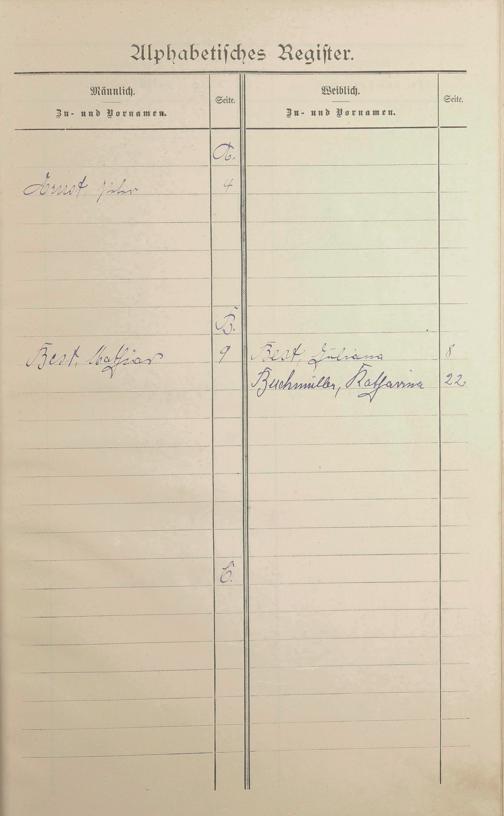 Alphabetisches Register.
Männlich. Seite. Weiblich. Seite.
Zu- und Vornamen. Zu- und Vornamen.
A.
4
B.
Best, Mathias 9 Best, Juliana 8
Buchmüller, Katharina 22
C.